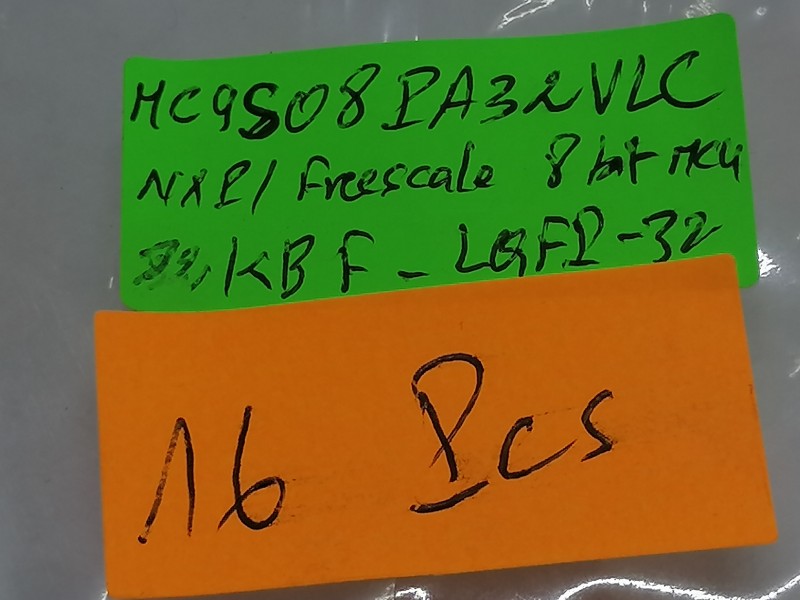 MC9S08PA32VLC
NXP/ Freescale 8 bit MCU
KB F - LQFP-32
16 Pcs